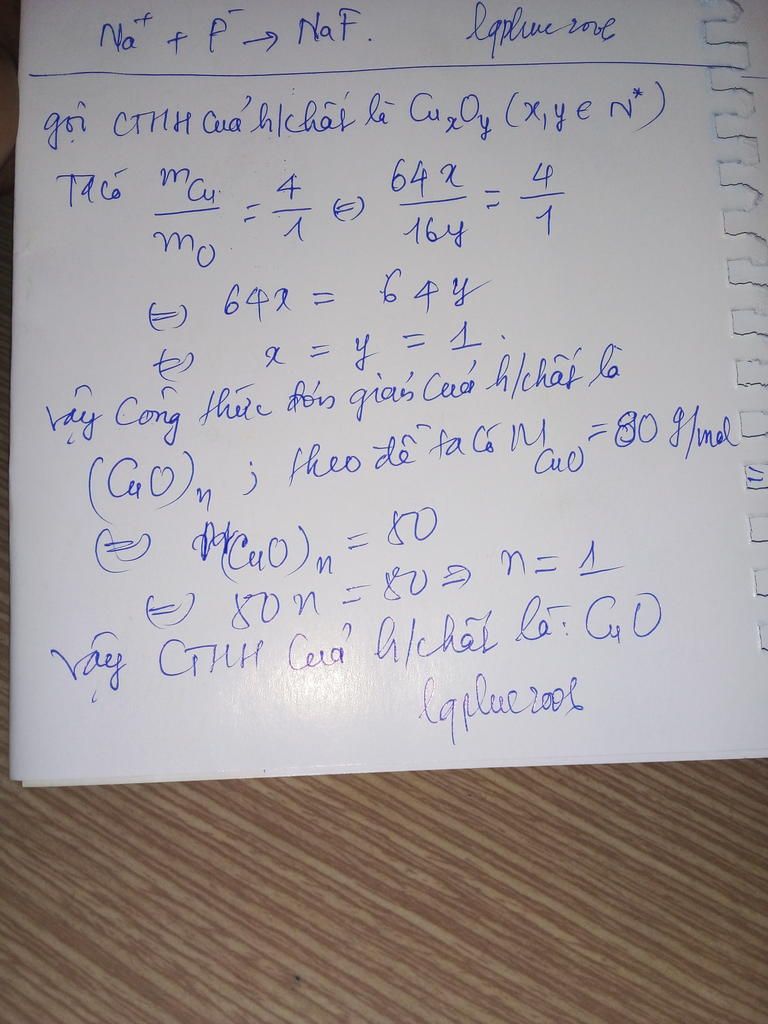 Na⁺ + F⁻ → NaF. lqphuc2006
gọi CTHH của h/chất là CuxOy (x,y ∈ N*)
Ta có mCu/mO = 4/1 ⇔ 64x/16y = 4/1
⇔ 64x = 64y
⇔ x = y = 1.
Vậy Công thức đơn giản của h/chất là
(CuO)n ; theo đề ta có MCuO = 80 g/mol
⇔ M(CuO)n = 80
⇔ 80n = 80 ⇒ n = 1
Vậy CTHH của h/chất là: CuO
lqphuc2006